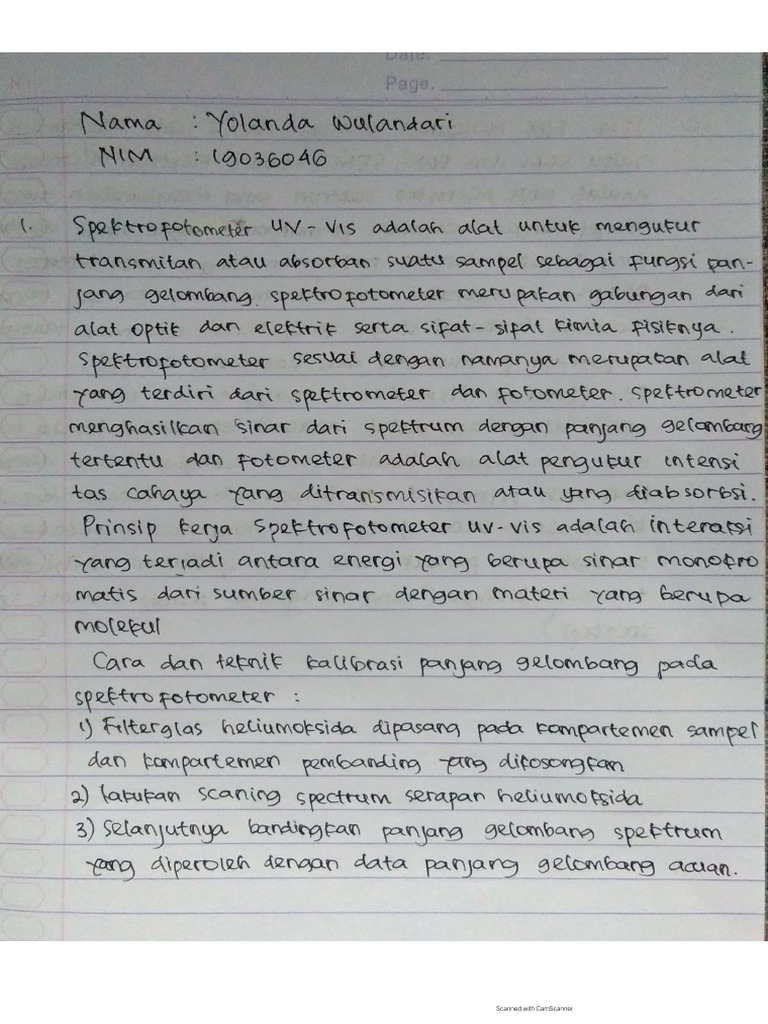 Date.
Page.
Nama : Yolanda Wulandari
NIM : 19036046
1. Spektrofotometer UV-Vis adalah alat untuk mengukur
transmitan atau absorban suatu sampel sebagai fungsi pan-
jang gelombang. spektrofotometer merupakan gabungan dari
alat optik dan elektrik serta sifat-sifat kimia fisiknya.
Spektrofotometer sesuai dengan namanya merupakan alat
yang terdiri dari spektrometer dan fotometer. spektrometer
menghasilkan sinar dari spektrum dengan panjang gelombang
tertentu dan fotometer adalah alat pengukur intensi
tas cahaya yang ditransmisikan atau yang diabsorbsi.
Prinsip kerja spektrofotometer uv-vis adalah interaksi
yang terjadi antara energi yang berupa sinar monokro
matis dari sumber sinar dengan materi yang berupa
molekul
Cara dan teknik kalibrasi panjang gelombang pada
spektrofotometer :
1) Filterglas heliumoksida dipasang pada kompartemen sampel
dan kompartemen pembanding yang dikosongkan
2) lakukan scaning spectrum serapan heliumoksida
3) Selanjutnya bandingkan panjang gelombang spektrum
yang diperoleh dengan data panjang gelombang acuan.
Scanned with CamScanner